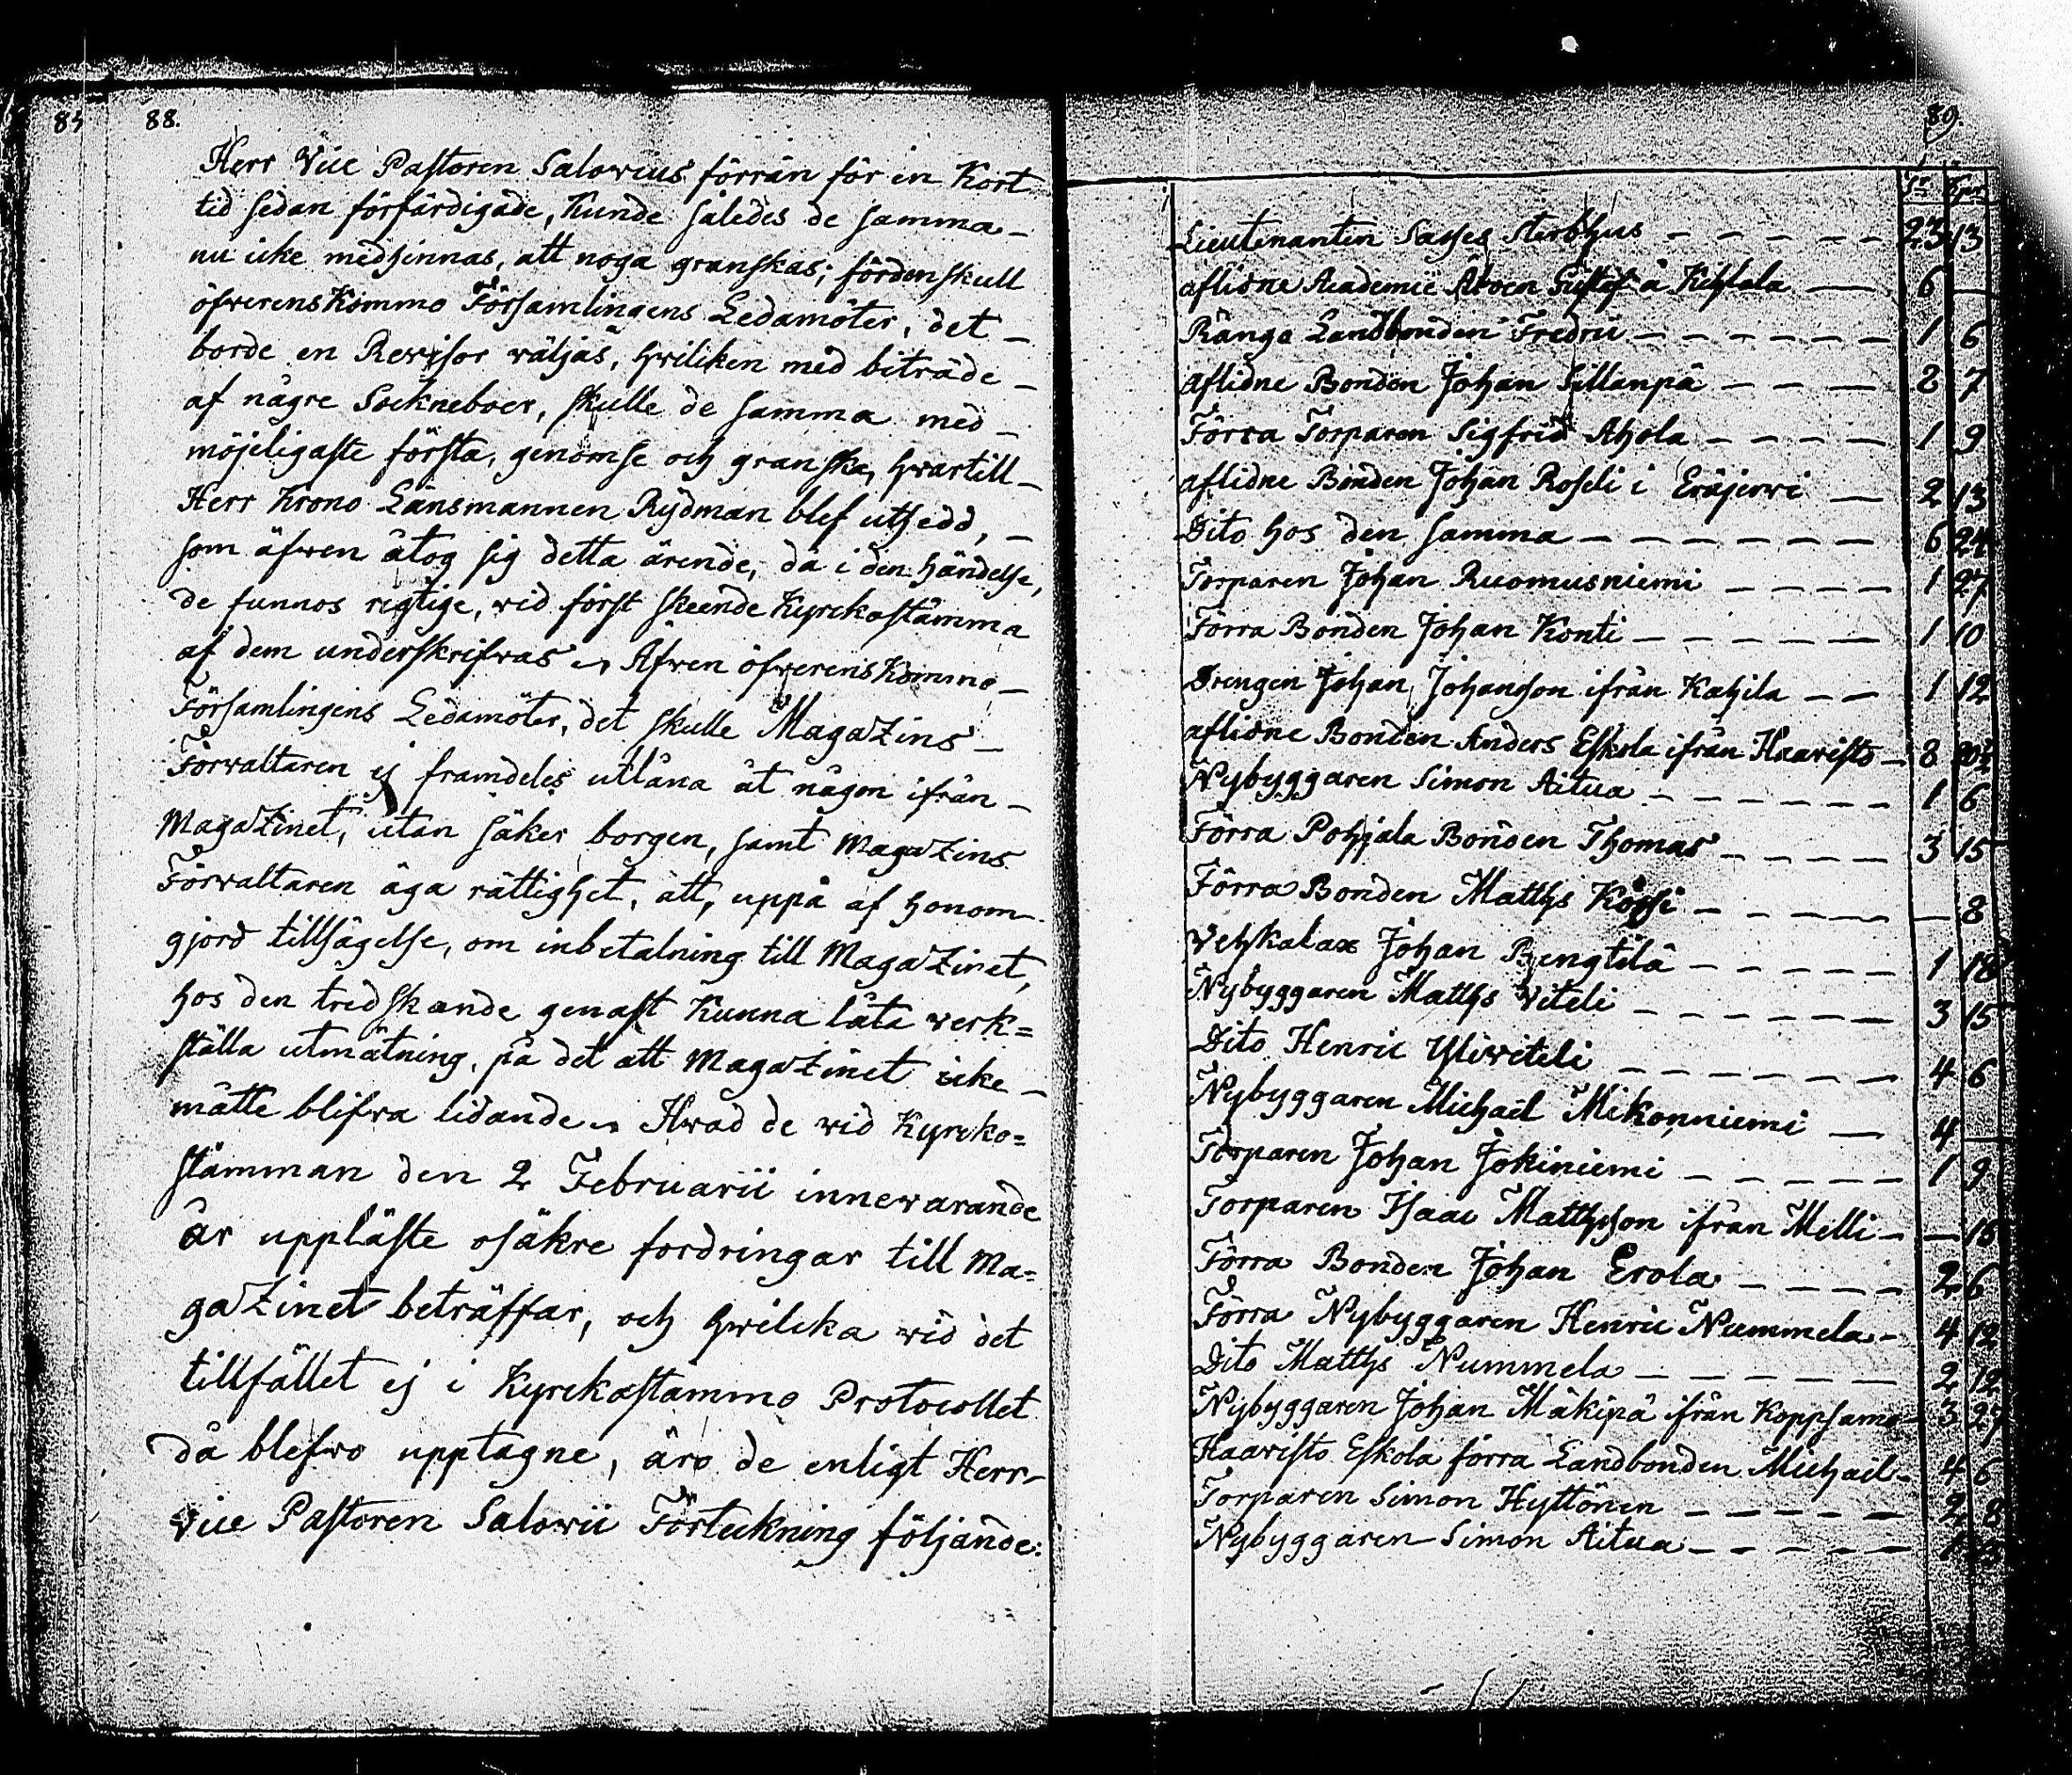 88.
Herr Vice Pastoren Salovius förrän för en Kort
tid sedan förfärdigade, Kunde således de samma
nu icke medhinnas, att noga granskas; fördenskull
öfverensKommo Församlingens Ledamöter, det
borde en Revisor väljas, hvilken med biträde
af någre Sockneboer, skulle de samma med
möjeligaste första, genomse och granska, hvartill
Herr Krono Länsmannen Rydman blef utsedd,
som äfven åtog sig detta ärende, då i den händelse,
de funnos rigtige, vid först skeende Kyrckostämma
af dem underskrifvas. Äfven öfverensKommo
Församlingens Ledamöter, det skulle Magazins
Förvaltaren ej framdeles utlåna åt någon ifrån
Magazinet, utan säker borgen, samt Magazins
Förvaltaren äga rättighet, att, uppå af honom
gjord tillsägelse, om inbetalning till Magazinet,
hos den tredskande genast Kunna låta verk=
ställa utmätning, på det att Magazinet icke
måtte blifva lidande. Hvad de vid Kyrcko=
stämman den 2 Februarii innevarande
år uppläste osäkre fordringar till Ma=
gazinet beträffar, och hvilcka vid det
tillfället ej i Kyrckostämmo Protocollet
då blefvo upptagne, äro de enligt Herr
Vice Pastoren Salovii Förteckning följande:
89.
Lieutenanten Sasses Sterbhus 23 13
aflidne Academie Åboen Gustaf å Kihlala 6 —
Rånga Landbonden Fredric 1 6
aflidne Bonden Johan Sillanpä 2 7
Förra Torparen Sigfrid Ahola 1 9
aflidne Bonden Johan Roseli i Eräjervi 2 13
Dito hos den samma 6 24
Torparen Johan Ruomusniemi 1 27
Förra Bonden Johan Konti 1 10
Drengen Johan Johanson ifrån Kahila 1 12
aflidne Bonden Anders Eskola ifrån Haavisto 8 20½
Nybyggaren Simon Aitua 1 6
Förra Pohjala Bonden Thomas 3 15
Förra Bonden Matths — 8
Vehkalax Johan Bengtilä 1 18
Nybyggaren Matths Viteli 3 15
Dito Henric Yliviteli 4 6
Nybyggaren Michaël Mikonniemi 4 —
Torparen Johan Jokiniemi 1 9
Torparen Isaac Matthson ifrån Melli — 18
Förra Bonden Johan Erola 2 6
Förra Nybyggaren Henric Nummela 4 12
Dito Matths Nummela 2 12
Nybyggaren Johan Mäkipä ifrån Koppsamo 3 27
Haavisto Eskola förra Landbonden Michaël 4 6
Torparen Simon Hyttönen 2 8
Nybyggaren Simon Aitua 1